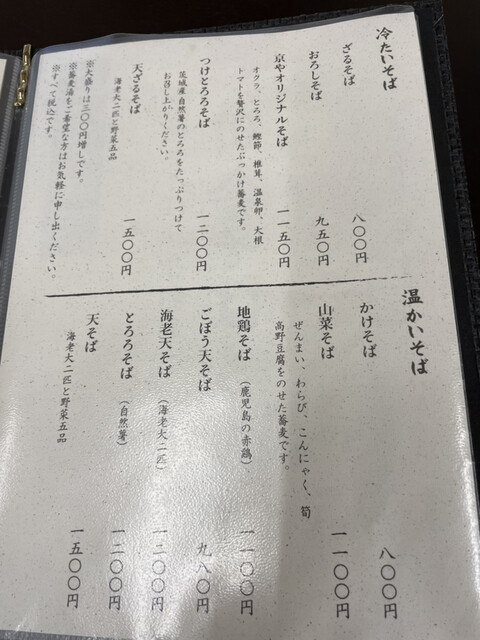 冷たいそば
ざるそば 八〇〇円
おろしそば 九五〇円
京やオリジナルそば 一一五〇円
オクラ、とろろ、鰹節、椎茸、温泉卵、大根
トマトを贅沢にのせたぶっかけ蕎麦です。
つけとろろそば 一二〇〇円
茨城産自然薯のとろろをたっぷりつけて
お召し上がりください。
天ざるそば 一五〇〇円
海老大二匹と野菜五品
※大盛りは三〇〇円増しです。
※蕎麦湯をご希望な方はお気軽に申し出ください。
※すべて税込です。
温かいそば
かけそば 八〇〇円
山菜そば 一一〇〇円
ぜんまい、わらび、こんにゃく、筍
高野豆腐をのせた蕎麦です。
地鶏そば（鹿児島の赤鶏） 一一〇〇円
ごぼう天そば 九八〇円
海老天そば（海老大二匹） 一三〇〇円
とろろそば（自然薯） 一二〇〇円
天そば 一五〇〇円
海老大二匹と野菜五品